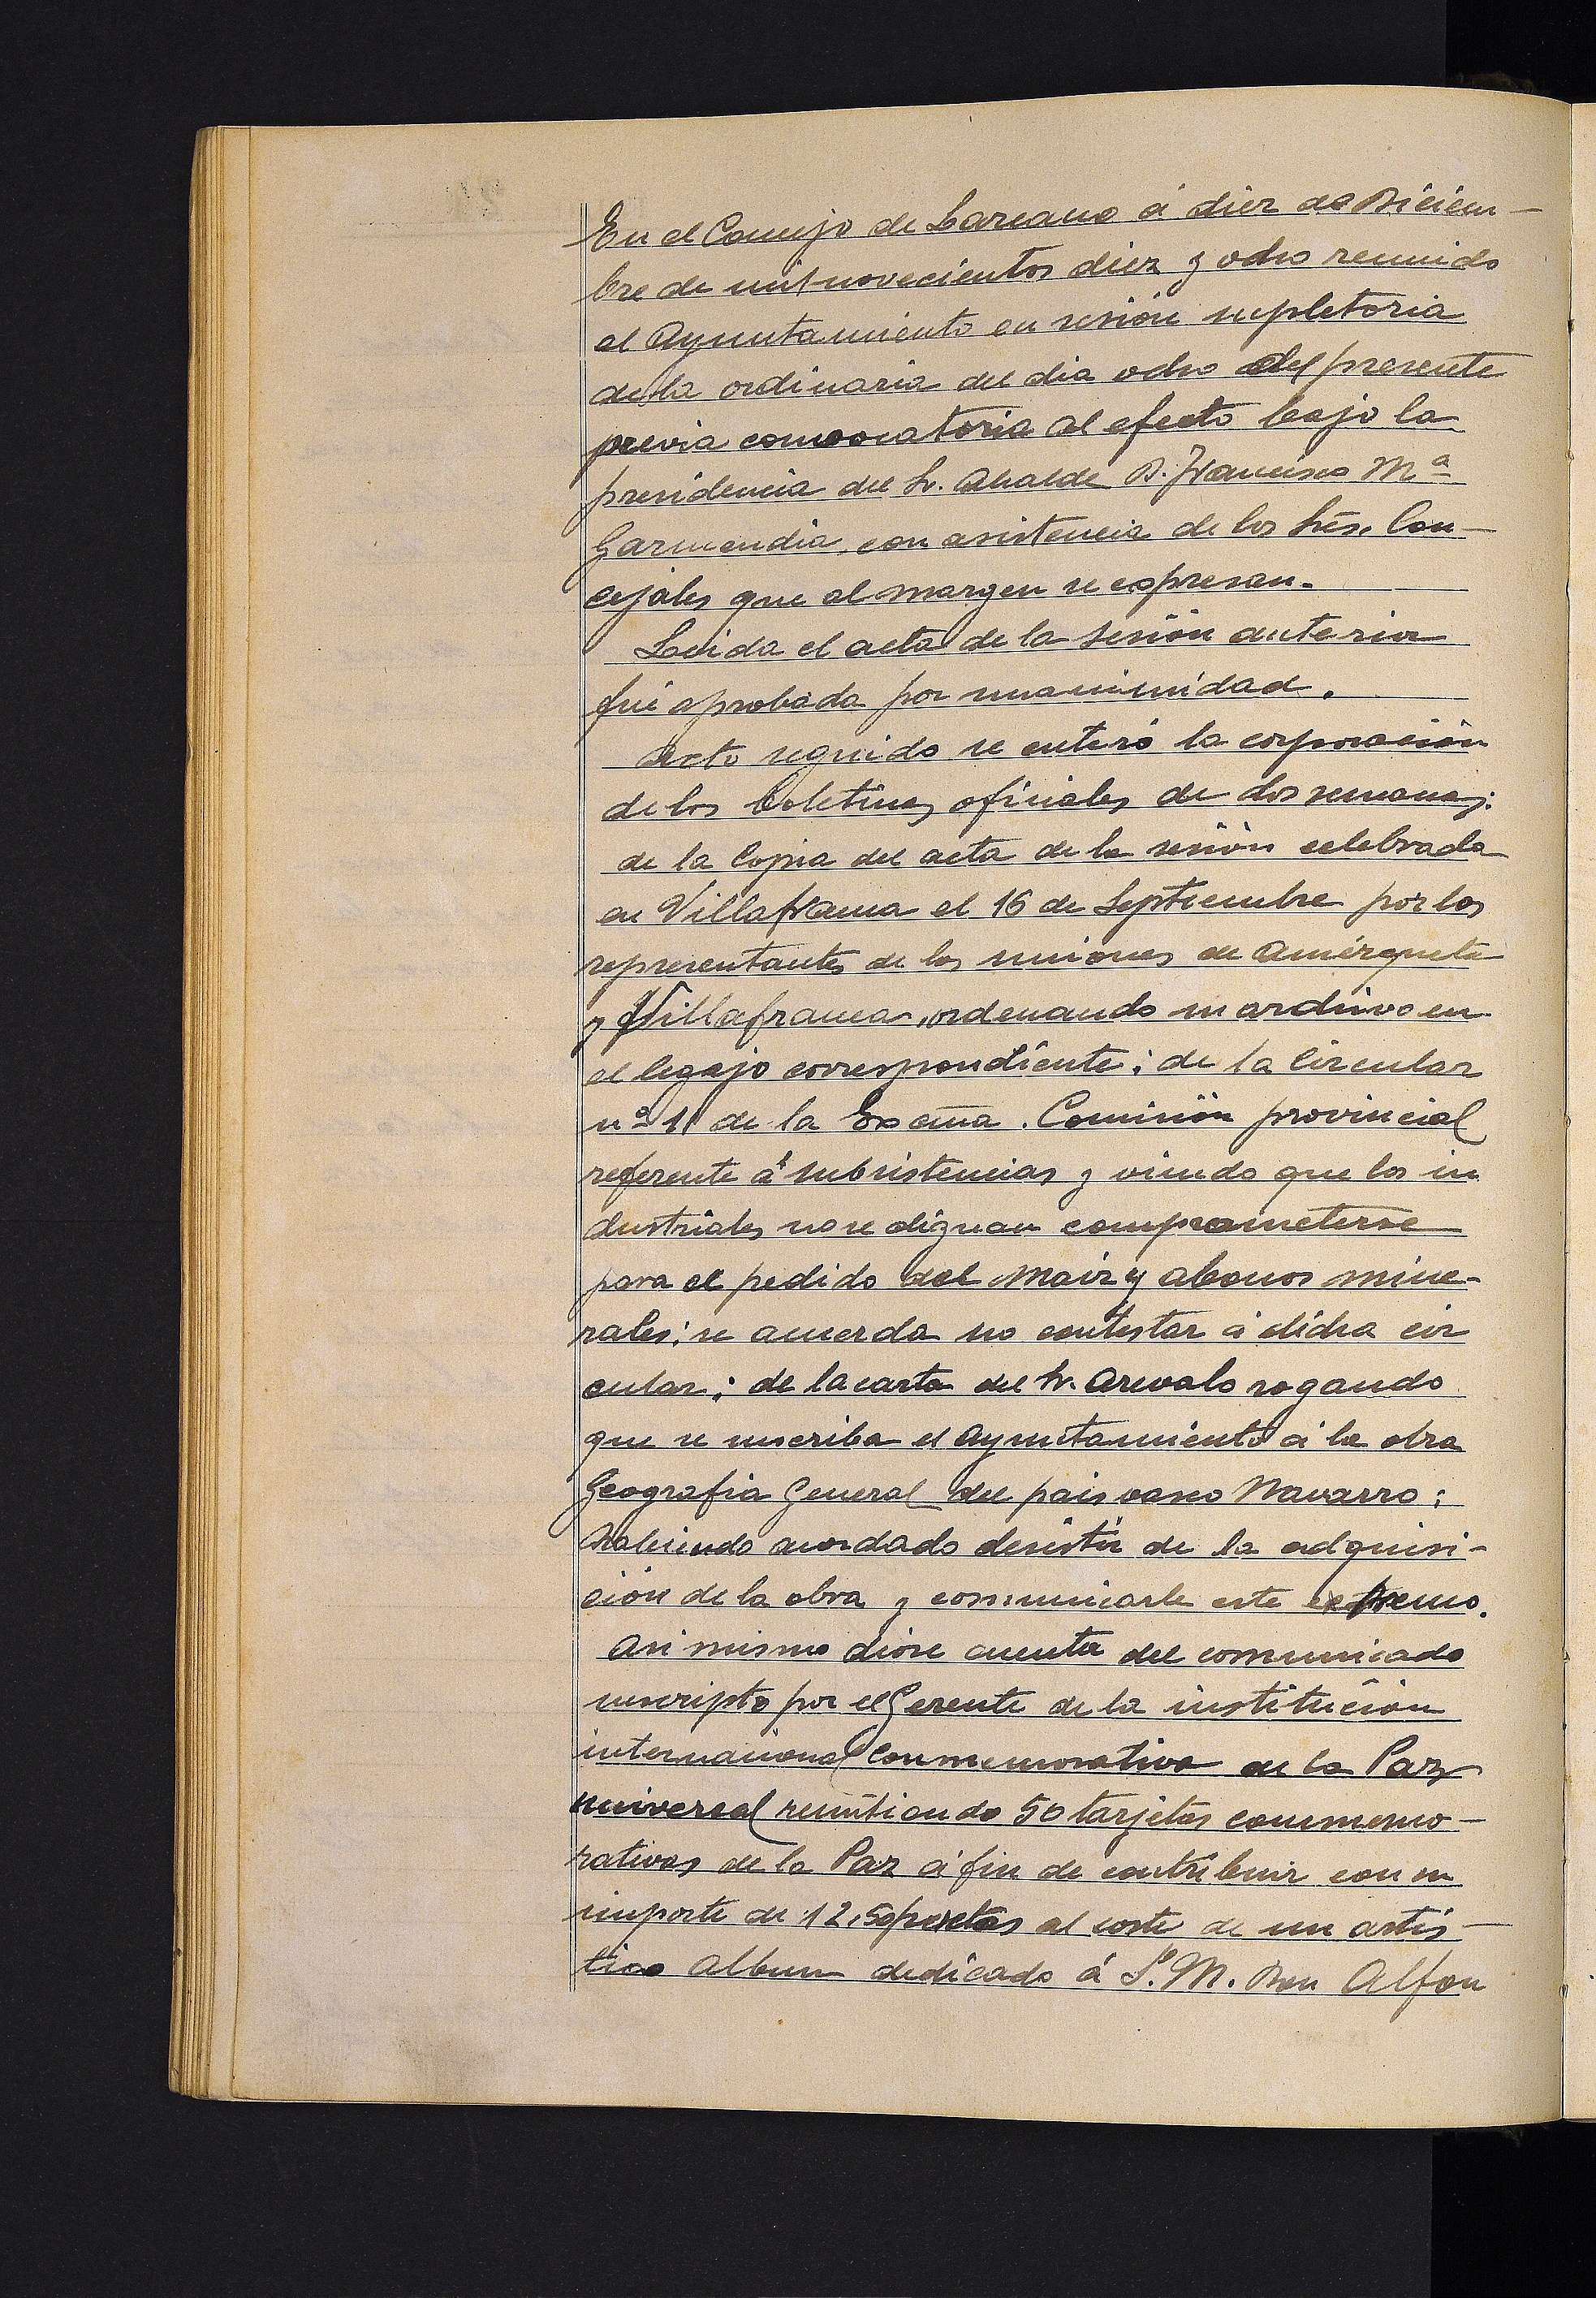 En el Concejo de Lazcano á diez de Diciem-
bre de mil novecientos diez y ocho reunido
el Ayuntamiento en sesión supletoria
de la ordinaria del dia ocho del presente
previa convocatoria al efecto bajo la
presidencia del Sr. Alcalde D. Francisco Mª
Garmendia, con asistencia de los Srés. Con-
cejales que al margen se expresan.
Leida el acta de la sesión anterior
fué aprobada por unanimidad.
Acto seguido se enteró la corporación
de los boletines oficiales de dos semanas:
de la Copia del acta de la sesión celebrada
en Villafranca el 16 de Septiembre por los
representantes de las uniones de Amézqueta
y Villafranca, ordenando su archivo en
el legajo correspondiente; de la Circular
nº 11 de la Excma. Comisión provincial
referente á subsistencias y viendo que los in
dustriales no se dignan comprometerse
para el pedido del maiz y abonos mine-
rales; se acuerda no contestar á dicha cir
cular; de la carta del Sr. Arevalo rogando
que se suscriba el Ayuntamiento á la obra
Geografia General del pais vasco Navarro;
habiendo acordado desistir de la adquisi-
ción de la obra y comunicarle este extremo.
Asi mismo dióse cuenta del comunicado
suscripto por el Gerente de la institución
internacional Conmemorativa de la Paz
universal remitiendo 50 tarjetas conmemo-
rativas de la Paz á fin de contribuir con su
importe de 12,50 pesetas al coste de un artís-
tico Album dedicado á S. M. Don Alfon